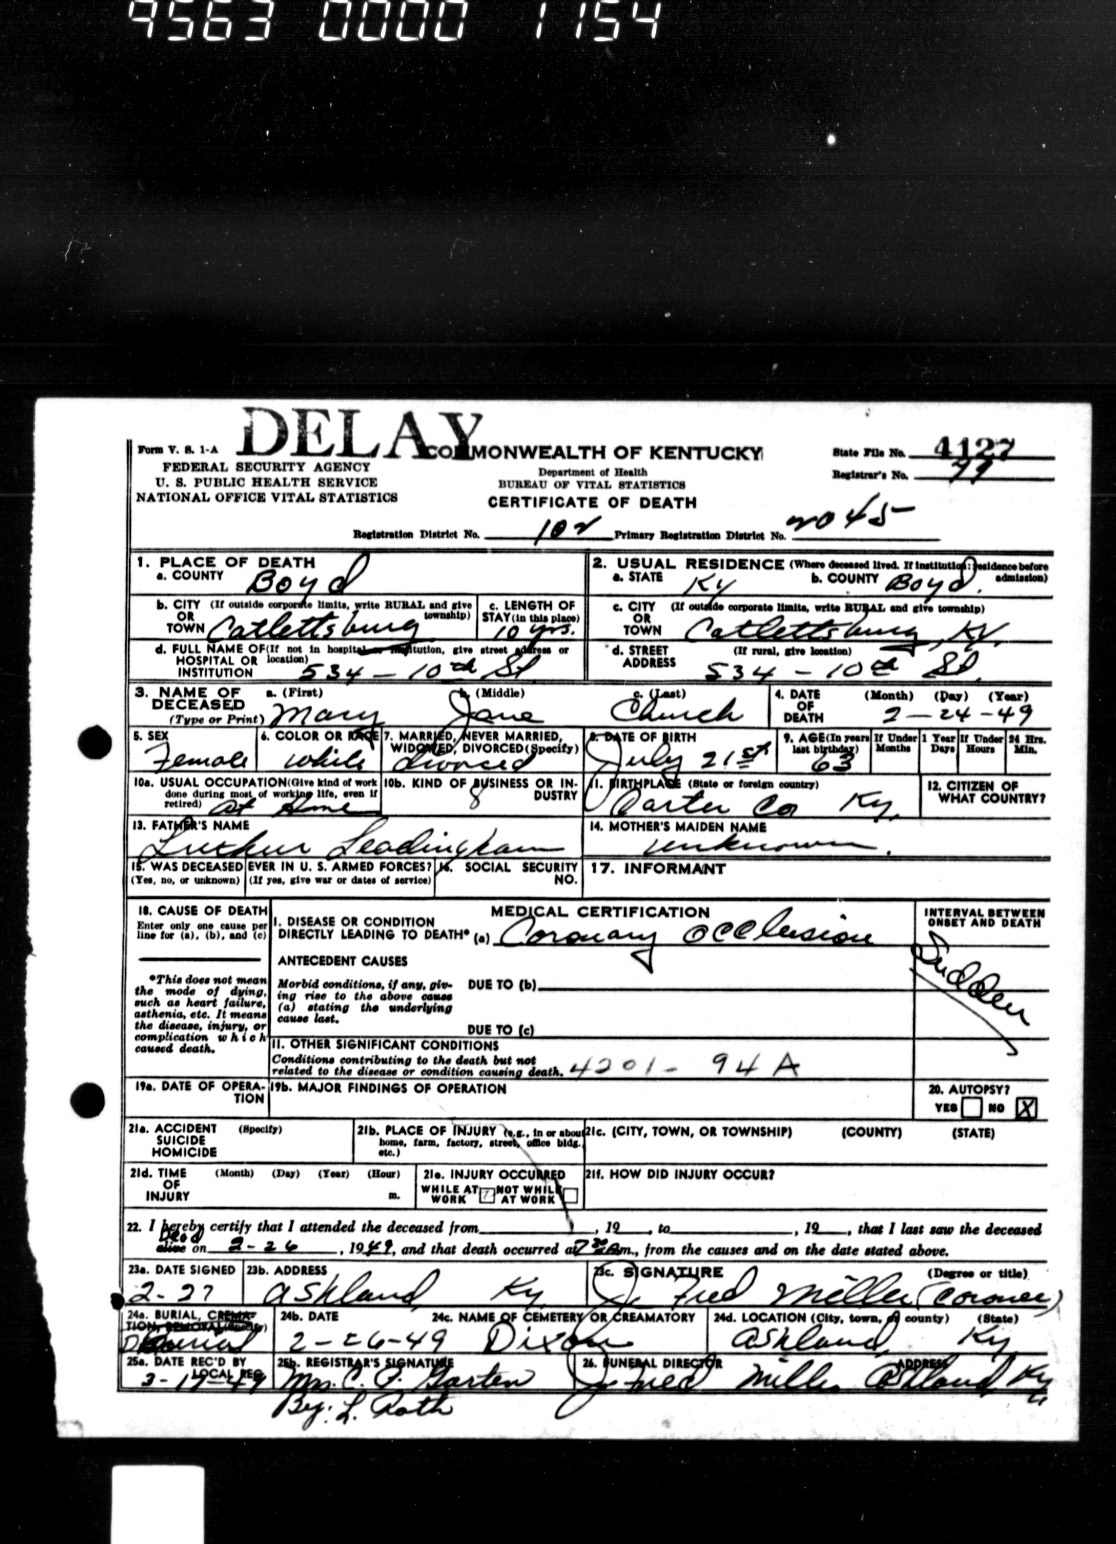 9563 0000 1154
DELAY
Form V. S. 1-A
COMMONWEALTH OF KENTUCKY
State File No. 4127
FEDERAL SECURITY AGENCY
Department of Health
Registrar's No. 77
U. S. PUBLIC HEALTH SERVICE
BUREAU OF VITAL STATISTICS
NATIONAL OFFICE VITAL STATISTICS
CERTIFICATE OF DEATH
Registration District No. 102 Primary Registration District No. 2045
1. PLACE OF DEATH
a. COUNTY Boyd
2. USUAL RESIDENCE (Where deceased lived. If institution: residence before admission)
a. STATE Ky b. COUNTY Boyd.
b. CITY (If outside corporate limits, write RURAL and give township)
OR
TOWN Catlettsburg
c. LENGTH OF
STAY (in this place)
10 yrs.
c. CITY (If outside corporate limits, write RURAL and give township)
OR
TOWN Catlettsburg Ky.
d. FULL NAME OF (If not in hospital or institution, give street address or location)
HOSPITAL OR
INSTITUTION 534 - 10th St
d. STREET (If rural, give location)
ADDRESS 534 - 10th St.
3. NAME OF DECEASED (Type or Print)
a. (First) b. (Middle) c. (Last)
Mary Jane Church
4. DATE OF DEATH (Month) (Day) (Year)
2-24-49
5. SEX
Female
6. COLOR OR RACE
White
7. MARRIED, NEVER MARRIED, WIDOWED, DIVORCED (Specify)
divorced
8. DATE OF BIRTH
July 21st
9. AGE (In years last birthday)
63
If Under 1 Year
Months Days
If Under 24 Hrs.
Hours Min.
10a. USUAL OCCUPATION (Give kind of work done during most of working life, even if retired) at Home
10b. KIND OF BUSINESS OR INDUSTRY
8
11. BIRTHPLACE (State or foreign country)
Carter Co Ky.
12. CITIZEN OF WHAT COUNTRY?
13. FATHER'S NAME
Luther Leadingham
14. MOTHER'S MAIDEN NAME
unknown.
15. WAS DECEASED EVER IN U. S. ARMED FORCES?
(Yes, no, or unknown) (If yes, give war or dates of service)
16. SOCIAL SECURITY NO.
17. INFORMANT
18. CAUSE OF DEATH
Enter only one cause per line for (a), (b), and (c)
MEDICAL CERTIFICATION
INTERVAL BETWEEN ONSET AND DEATH
I. DISEASE OR CONDITION
DIRECTLY LEADING TO DEATH* (a) Coronary Occlusion
Sudden
*This does not mean the mode of dying, such as heart failure, asthenia, etc. It means the disease, injury, or complication which caused death.
ANTECEDENT CAUSES
Morbid conditions, if any, giving rise to the above cause (a) stating the underlying cause last.
DUE TO (b)
DUE TO (c)
II. OTHER SIGNIFICANT CONDITIONS
Conditions contributing to the death but not related to the disease or condition causing death. 4201 - 94 A
19a. DATE OF OPERATION
19b. MAJOR FINDINGS OF OPERATION
20. AUTOPSY?
YES NO X
21a. ACCIDENT (Specify)
SUICIDE
HOMICIDE
21b. PLACE OF INJURY (e.g., in or about home, farm, factory, street, office bldg., etc.)
21c. (CITY, TOWN, OR TOWNSHIP) (COUNTY) (STATE)
21d. TIME OF INJURY (Month) (Day) (Year) (Hour)
m.
21e. INJURY OCCURRED
WHILE AT WORK NOT WHILE AT WORK
21f. HOW DID INJURY OCCUR?
22. I hereby certify that I attended the deceased from , 19 to , 19 , that I last saw the deceased
Dead
alive on 2-26, 1949, and that death occurred at 7 30 A m., from the causes and on the date stated above.
23a. DATE SIGNED
2-27
23b. ADDRESS
Ashland, Ky
23c. SIGNATURE (Degree or title)
J. Fred Miller (Coroner)
24a. BURIAL, CREMATION, REMOVAL (Specify)
Burial
24b. DATE
2-26-49
24c. NAME OF CEMETERY OR CREAMATORY
Dixon
24d. LOCATION (City, town, or county) (State)
Ashland, Ky
25a. DATE REC'D BY LOCAL REG.
3-17-49
25b. REGISTRAR'S SIGNATURE
Mrs. C. P. Garten
By: L. Roth
26. FUNERAL DIRECTOR ADDRESS
J. Fred Miller Ashland Ky